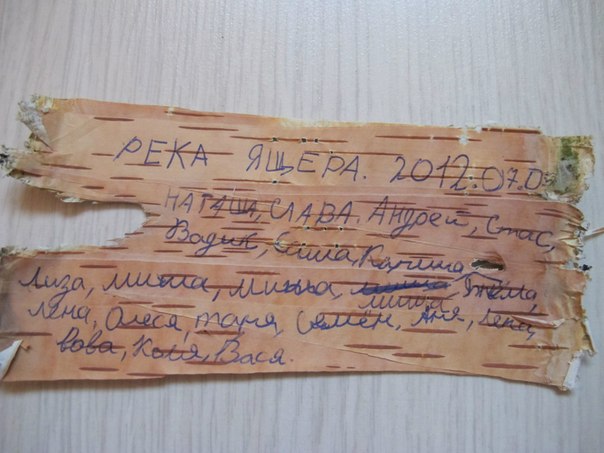 РЕКА ЯЩЕРА. 2012.07.0
НАТАША, СЛАВА. Андрей, Стас,
Вадик, Саша, Карина
Лиза, Миша, Миша, Миша, Тёма,
Лена, Олеся, Таня, Семён, Аня, Лена,
Вова, Коля, Вася.